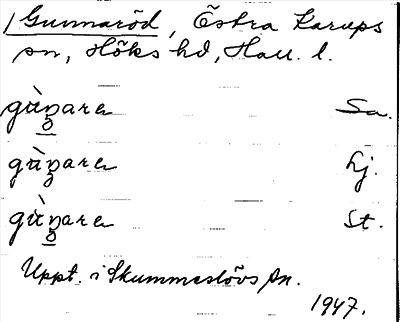 Gunnaröd, Östra Karups
sn, Höks hd, Hall. l.
gùn̥aren Sa.
gùn̥aren Lj.
gùn̥aren St.
Uppt. i Skummeslövs sn.
1947.